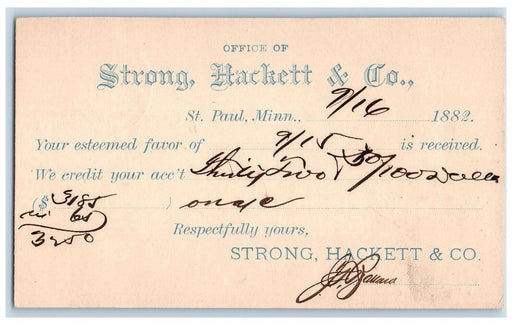 OFFICE OF
Strong, Hackett & Co.,
St. Paul, Minn., 9/16 1882.
Your esteemed favor of 9/15 is received.
We credit your acc't Thirty Two & 50/100 Dollars
($ 3185 ) on a/c
int 65
3250
Respectfully yours,
STRONG, HACKETT & CO.